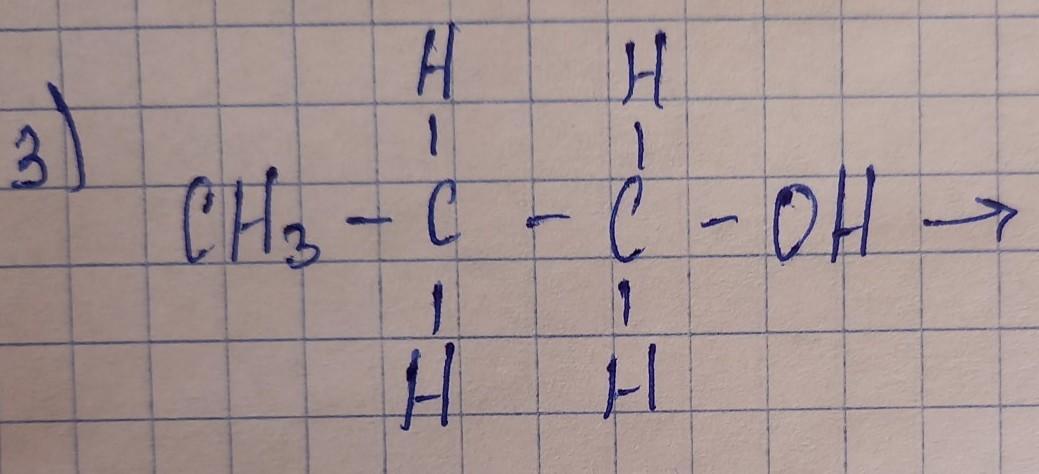 H H
3) CH3 - C - C - OH →
H H